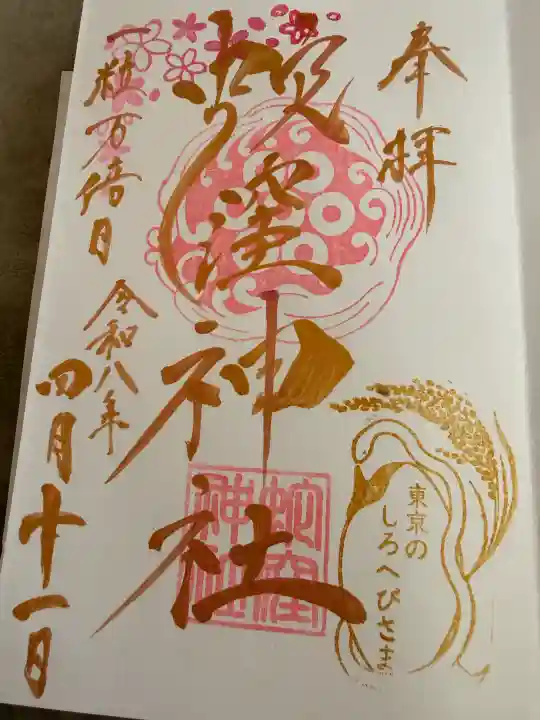 奉拝
蛇窪神社
一粒万倍日
令和八年
四月十一日
蛇窪
神社
東京の
しろへびさま